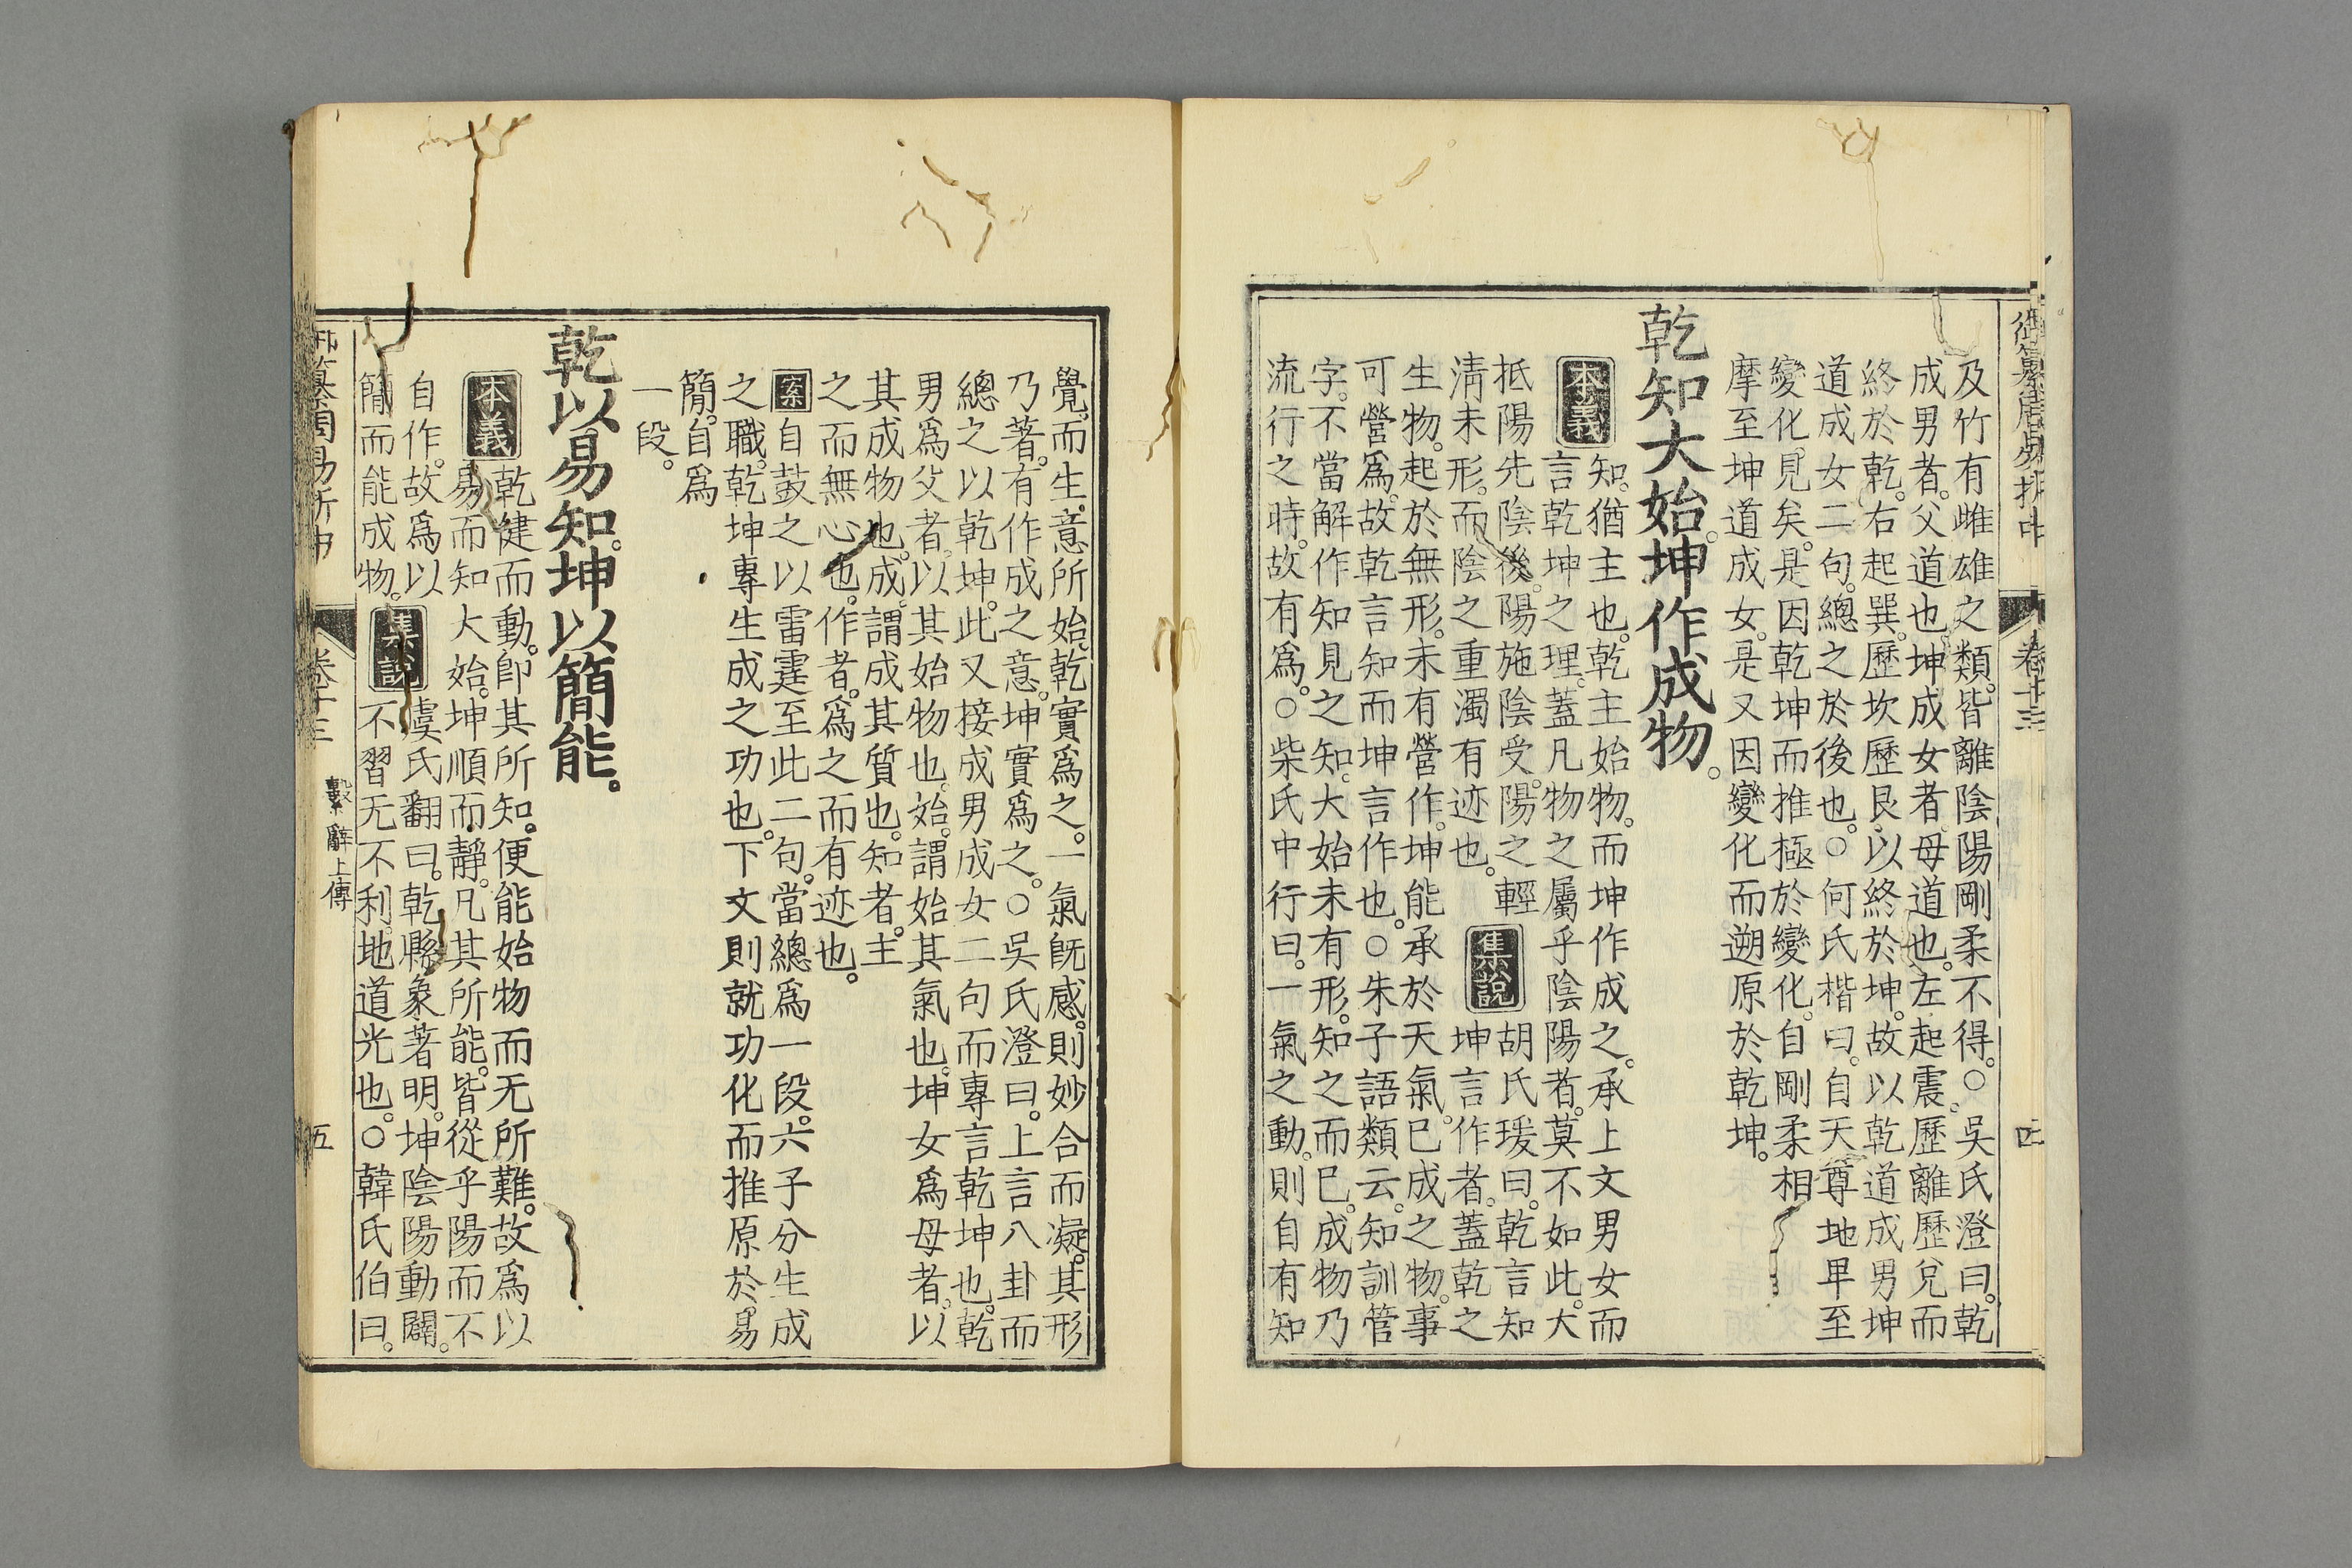 御纂周易折中 卷十三 四
及竹有雌雄之類。皆離陰陽剛柔不得。○吳氏澄曰。乾
成男者。父道也。坤成女者。母道也。左起震。歷離歷兌而
終於乾。右起巽。歷坎歷艮。以終於坤。故以乾道成男坤
道成女二句。總之於後也。○何氏楷曰。自天尊地卑至
變化見矣。是因乾坤而推極於變化。自剛柔相
摩至坤道成女。是又因變化而遡原於乾坤。
乾知大始。坤作成物。
本義 知。猶主也。乾主始物。而坤作成之。承上文男女而
言乾坤之理。蓋凡物之屬乎陰陽者。莫不如此。大
抵陽先陰後。陽施陰受。陽之輕
淸未形。而陰之重濁有迹也。 集說 胡氏瑗曰。乾言知
坤言作者。蓋乾之
生物。起於無形。未有營作。坤能承於天氣。已成之物。事
可營爲。故乾言知而坤言作也。○朱子語類云。知訓管
字。不當解作知見之知。大始未有形。知之而已。成物乃
流行之時。故有爲。○柴氏中行曰。一氣之動。則自有知
覺。而生意所始。乾實爲之。一氣旣感。則妙合而凝。其形
乃著。有作成之意。坤實爲之。○吳氏澄曰。上言八卦而
總之以乾坤。此又接成男成女二句而專言乾坤也。乾
男爲父者。以其始物也。始。謂始其氣也。坤女爲母者。以
其成物也。成。謂成其質也。知者。主
之而無心也。作者。爲之而有迹也。
案 自鼓之以雷霆至此二句。當總爲一段。六子分生成
之職。乾坤專生成之功也。下文則就功化而推原於易
簡。自爲
一段。
乾以易知。坤以簡能。
本義 乾健而動。卽其所知。便能始物而无所難。故爲以
易而知大始。坤順而靜。凡其所能。皆從乎陽而不
自作。故爲以
簡而能成物。 集說 虞氏翻曰。乾縣象著明。坤陰陽動闢。
不習无不利。地道光也。○韓氏伯曰。
御纂周易折中 卷十三 繫辭上傳 五